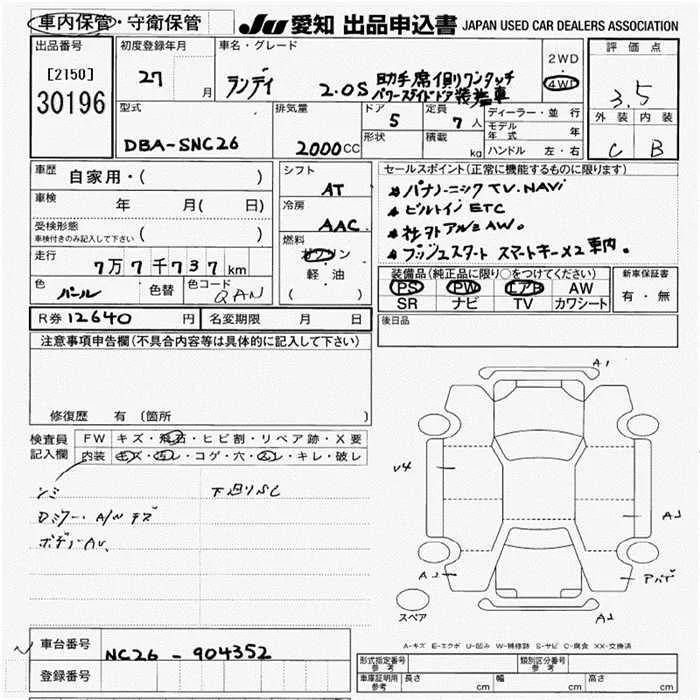 車内保管・守衛保管
JU 愛知 出品申込書 JAPAN USED CAR DEALERS ASSOCIATION
出品番号
[2150]
30196
初度登録年月
27 月
車名・グレード
ランディ 2.0S 助手席側ワンタッチ
パワースライドドア装着車
2WD
・
4WD
評価点
3.5
外装 内装
C B
型式
DBA-SNC26
排気量
2000CC
ドア
5
形状
定員
7人
積載
kg
ディーラー・並行
モデル
年式 年
ハンドル 左・右
車歴
自家用・( )
車検 年 月( 日)
受検形態
車検付きのみ記入して下さい ( )
走行
7万7千737km
色
パール
色替
色コード
QAN
シフト
AT
冷房
AAC
燃料
ガソリン
軽・油
( )
セールスポイント(正常に機能するものに限ります)
パナソニックTV.NAVi
ビルトインETC
社外アルミAW。
プッシュスタート スマートキー×2 車内。
装備品(純正品に限り○をつけてください)
PS PW エアB AW
SR ナビ TV カワシート
新車保証書
有・無
R券 12640 円 名変期限 月 日
後日品
注意事項申告欄(不具合内容等は具体的に記入して下さい)
修復歴 有 (箇所 )
検査員
記入欄
FW キズ・飛石・ヒビ割・リペア跡・X要
内装 キズ・汚レ・コゲ・穴・スレ・キレ・破レ
シミ 下回りSC
Dミラー・A/W キズ
ボディーAU、
A1
U4
A2
A2
アバキ
A2
スペア
A-キズ E-エクボ U-凹み W-補修跡 S-サビ C-腐食 XX-交換済
車台番号
NC26-904352
登録番号
形式指定番号
参考
類別区分番号
参考
車庫証明用
参考
長さ cm 幅 cm 高さ cm